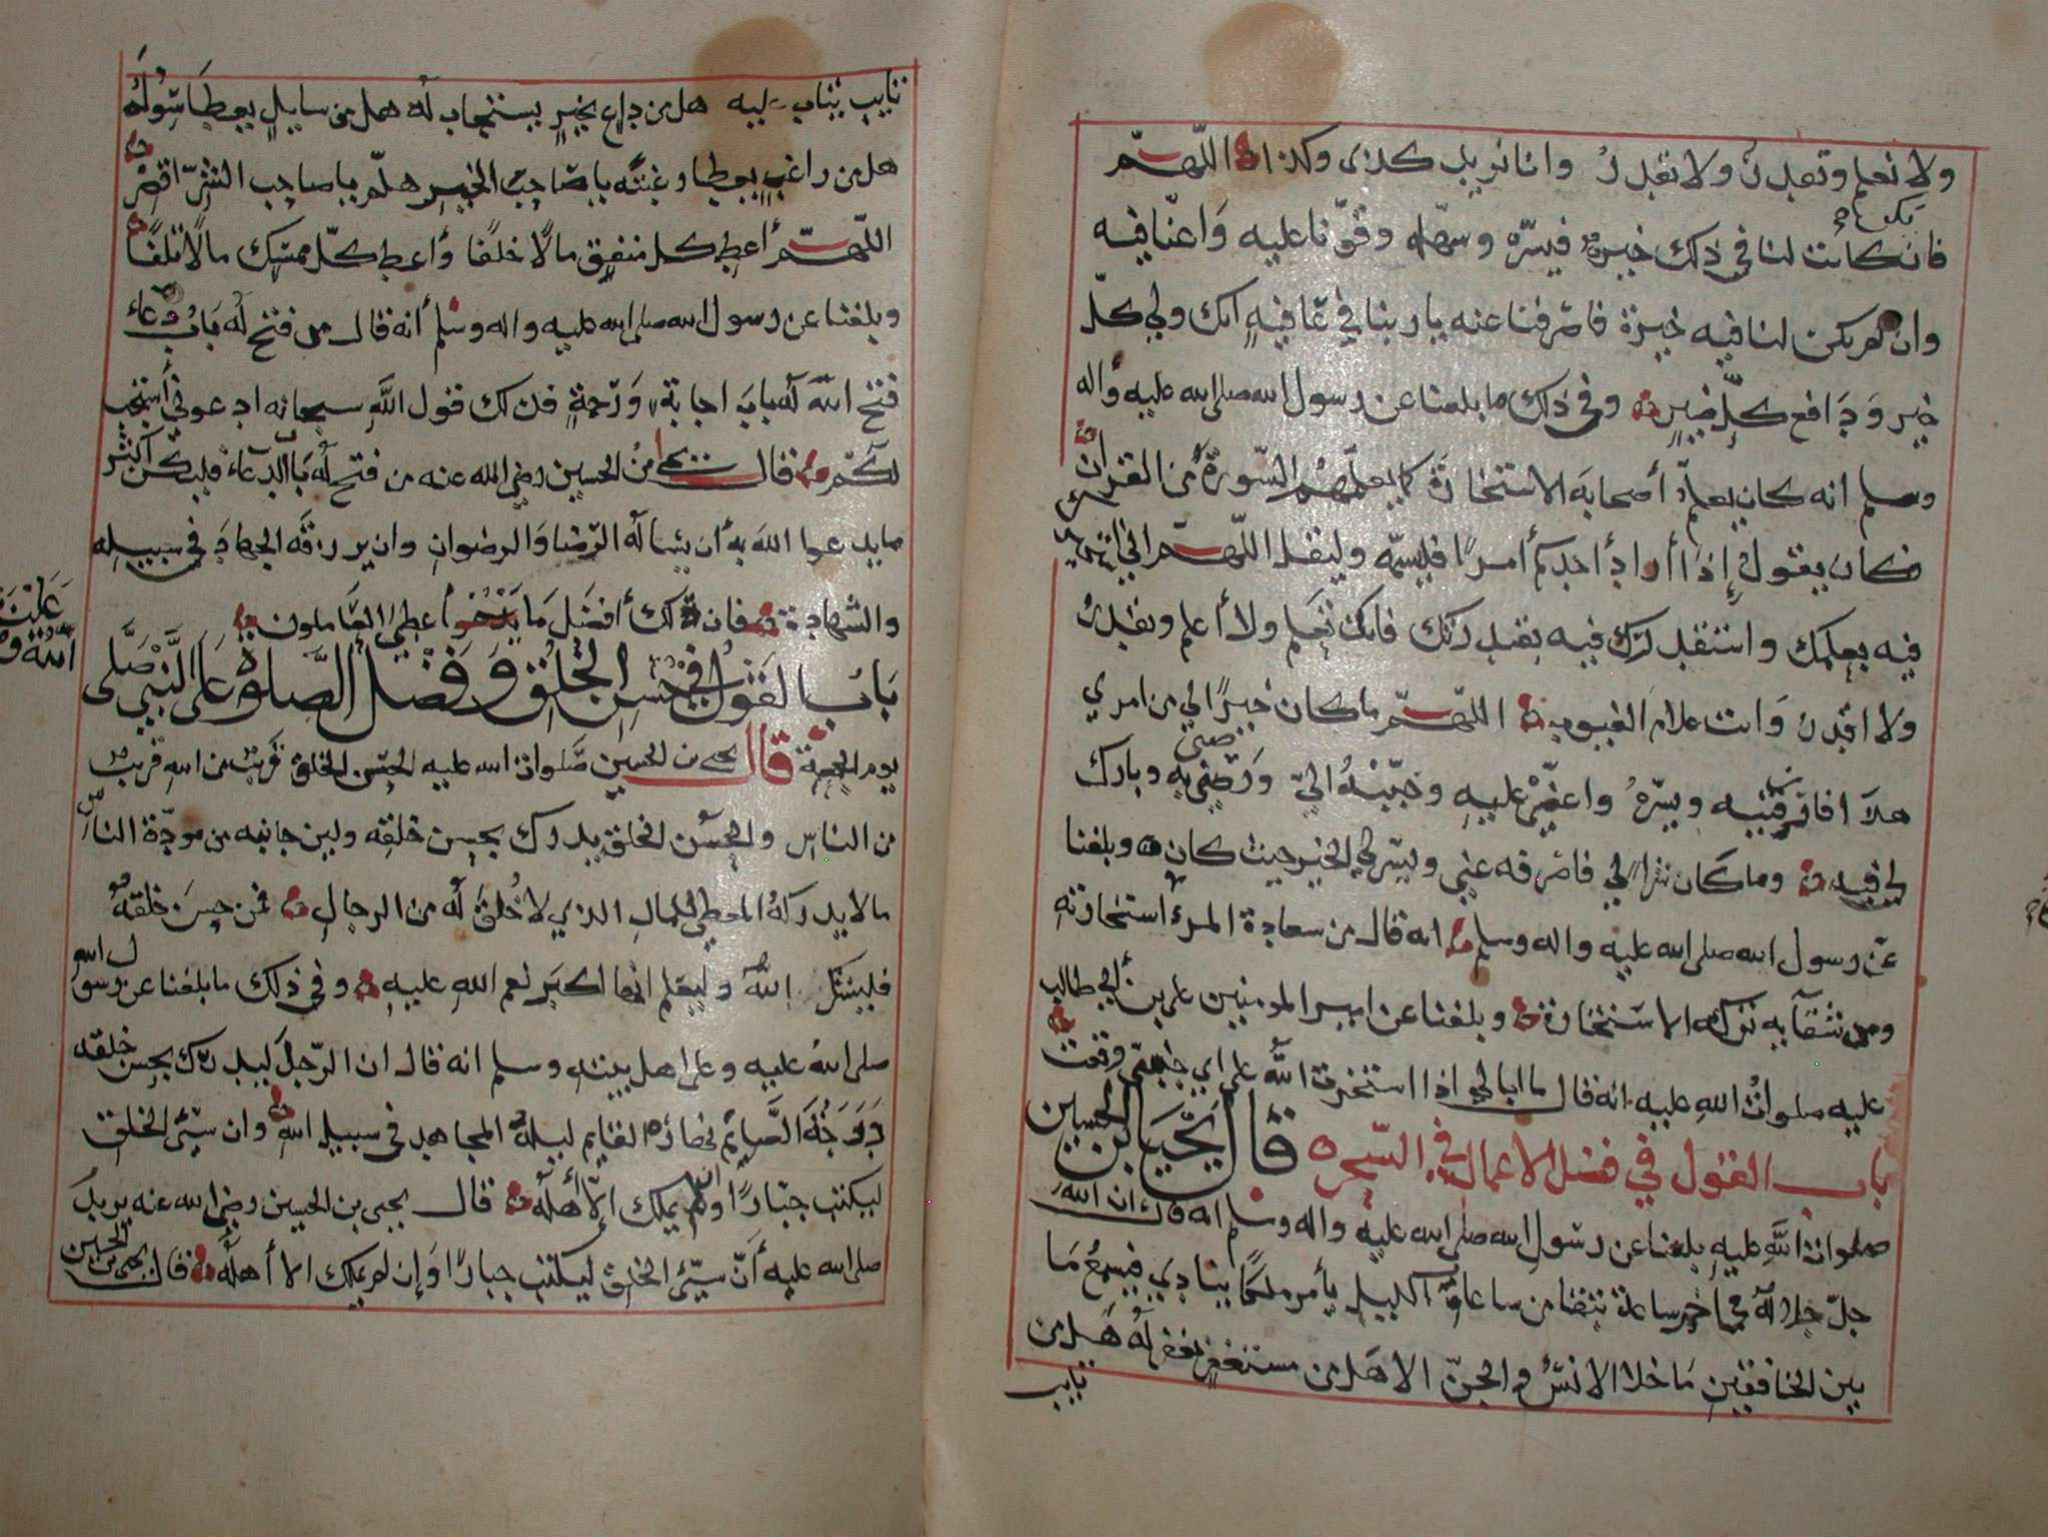 ولا نعلم وتقدر ولا نقدر وانا نريد كذى وكذا اللهم
يكن
فان كانت لنا في ذلك خيرة فيسره وسهله وقونا عليه واعنا فيه
وان لم يكن لنا فيه خيرة فاصرفنا عنه يا ربنا في عافية انك ولي كل
خير ودافع كل ضير وفي ذلك ما بلغنا عن رسول الله صلى الله عليه واله
وسلم انه كان يعلم أصحابه الاستخارة كما يعلمهم السورة من القران
فكان يقول إذا أراد أحدكم أمرا فليسمه وليقل اللهم اني استخيرك
فيه بعلمك واستقدرك فيه بقدرتك فانك تعلم ولا أعلم وتقدر
ولا اقدر وانت علام الغيوب اللهم ما كان خيرا لي من امري
هذا فارزقنيه ويسره واعني عليه وحببه الي ورضني به وبارك
لي فيه وما كان شرا لي فاصرفه عني ويسر لي الخير حيث كان وبلغنا
عن رسول الله صلى الله عليه واله وسلم انه قال من سعادة المرء استخارته
ومن شقآيه تركه الاستخارة وبلغنا عن امير المومنين علي بن أبي طالب
عليه صلوات الله عليه انه قال ما ابالي اذا استخرت الله على اي جنبي وقعت
باب القول في فضل الاعمال في السحر قال يحيى بن الحسين
صلوات الله عليه بلغنا عن رسول الله صلى الله عليه واله وسلم انه قال ان الله
جل جلاله في اخر ساعة تبقا من ساعات الليل يأمر ملكا ينادي فيسمع ما
بين الخافقين ما خلا الانس والجن الا هل من مستغفر يغفر له هل من
تايب
تايب يتاب عليه هل من داع بخير يستجاب له هل من سايل يعطا سوله
هل من راغب يعطا رغبته يا صاحب الخير هلم يا صاحب الشر اقصر
اللهم أعط كل منفق مالا خلفا وأعط كل ممسك مالا تلفا
وبلغنا عن رسول الله صلى الله عليه واله وسلم أنه قال من فتح له باب دعاء
فتح الله له باب اجابة ورحمة فذلك قول الله سبحانه ادعوني أستجب
لكم قال يحيى بن الحسين رضي الله عنه من فتح له باب الدعاء فليكن أكثر
ما يدعوا الله به أن يساله الرضا والرضوان وان يرزقه الجهاد في سبيله
والشهادة فان ذلك أفضل ما يدخر أعطي العاملون
باب القول في حسن الخلق وفضل الصلاة على النبي صلى
الله عليه
يوم الجمعة قال يحيى بن الحسين صلوات الله عليه الحسن الخلق قريب من الله قريب
من الناس والحسن الخلق يدرك بحسن خلقه ولين جانبه من مودة الناس
ما لا يدركه المعطي للمال الذي لا خلق له من الرجال فمن حسن خلقه
فليشكر الله وليعلم انها لكبر نعم الله عليه وفي ذلك ما بلغنا عن رسول الله
صلى الله عليه وعلى اهل بيته وسلم انه قال ان الرجل ليدرك بحسن خلقه
درجة الصايم نهاره القايم ليله المجاهد في سبيل الله وان سيئ الخلق
ليكتب جبارا وان لم يملك إلا أهله قال يحيى بن الحسين رضي الله عنه يريد
صلى الله عليه أن سيئ الخلق ليكتب جبارا وإن لم يملك الا أهله قال يحيى بن الحسين